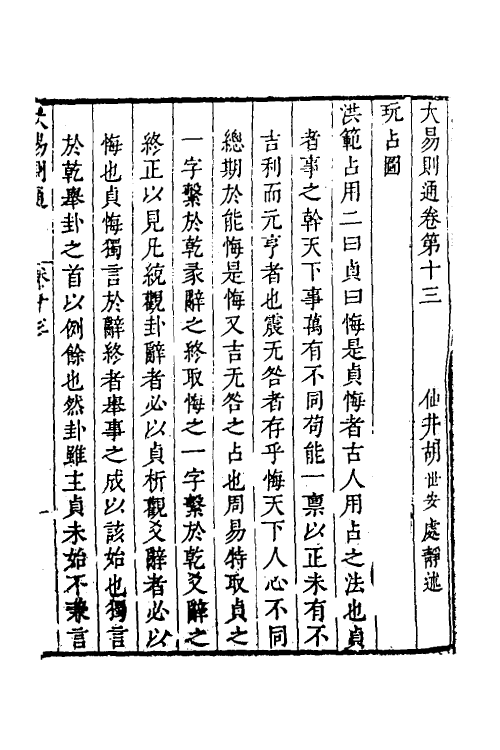 大易則通卷第十三　仙井胡世安處靜述
玩占圖
洪範占用二曰貞曰悔是貞悔者古人用占之法也貞
者事之幹天下事萬有不同苟能一稟以正未有不
吉利而元亨者也震无咎者存乎悔天下人心不同
總期於能悔是悔又吉无咎之占也周易特取貞之
一字繫於乾彖辭之終取悔之一字繫於乾爻辭之
終正以見凡統觀卦辭者必以貞析觀爻辭者必以
悔也貞悔獨言於辭終者舉事之成以該始也獨言
於乾舉卦之首以例餘也然卦雖主貞未始不兼言
大易則通　卷十三　一